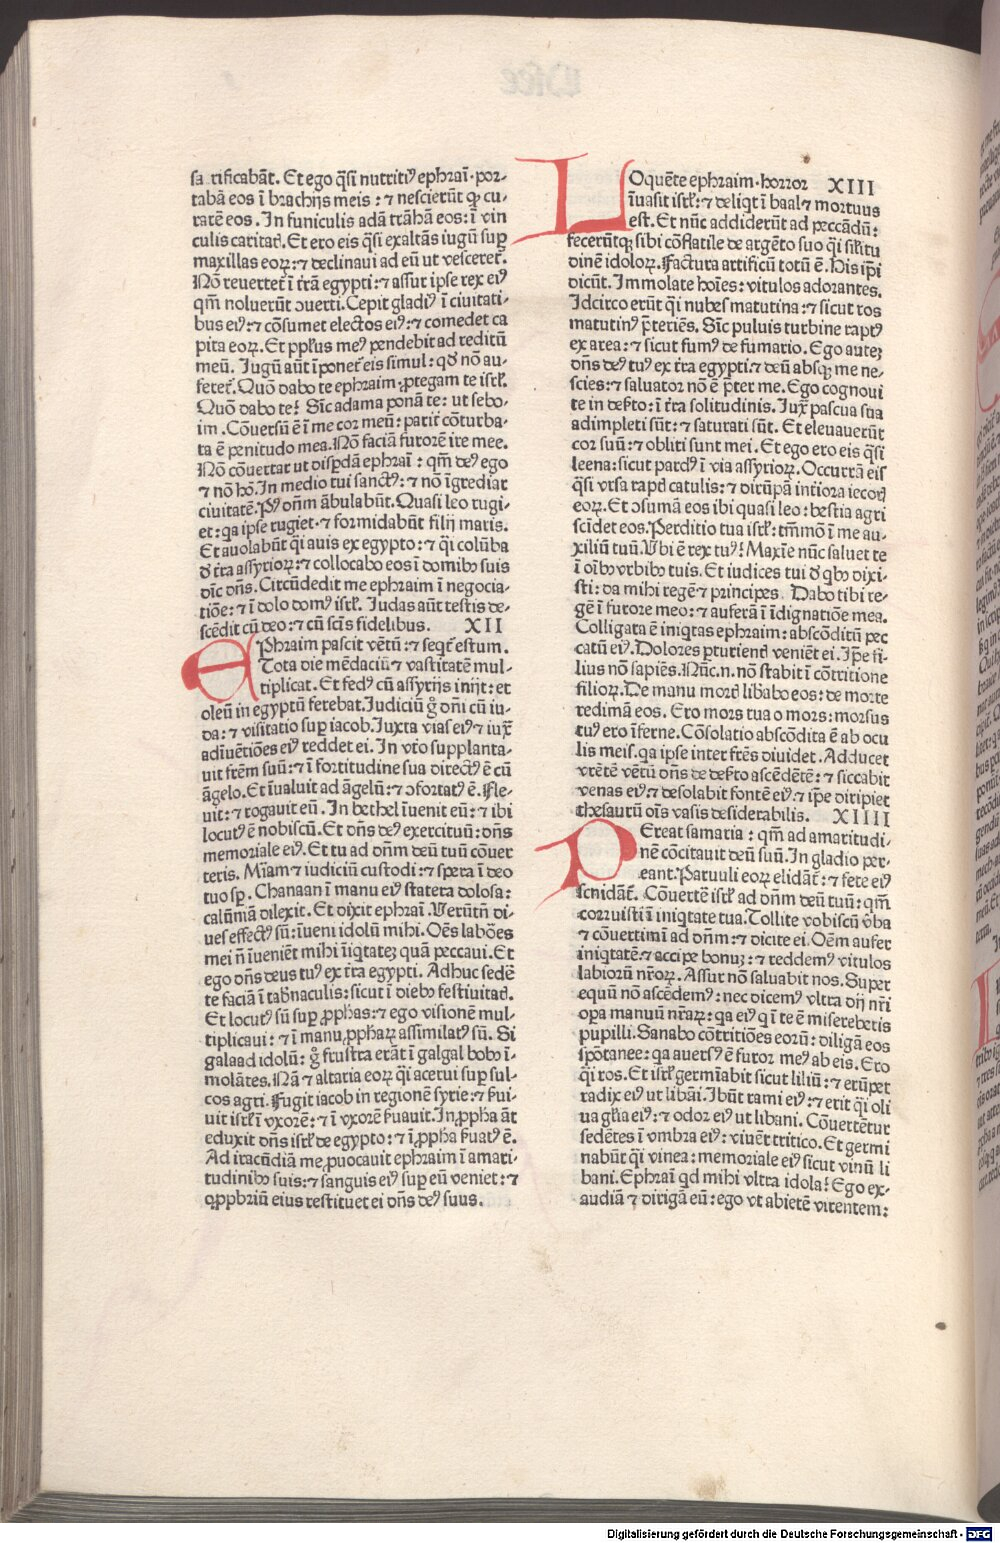 sa rificabāt. Et ego q̄si nutritiꝰ ephraī· por-
tabā eos ī brachijs meis : ⁊ nescierūt ꝙ cu-
ratē eos. In funiculis adā trāhā eos: ī vin
culis caritaꝭ. Et ero eis q̄si exaltās iugū suꝑ
maxillas eoꝝ: ⁊ declinaui ad eū ut vesceret᷒.
Nō reuertet᷒ ī t̄rā egypti: ⁊ assur ipse rex eiꝰ
qm̄ noluerūt ↄuerti. Cepit gladiꝰ ī ciuitati-
bus eiꝰ: ⁊ cōsumet electos eiꝰ: ⁊ comedet ca
pita eoꝝ. Et pp̄lus meꝰ pendebit ad reditū
meū. Iugū aūt īponet᷒ eis simul: qd̄ nō au-
feret᷒. Quō dabo te ephraim ꝓtegam te isrl̄.
Quō dabo te? Sic̄ adama ponā te: ut sebo-
im. Cōuersū ē ī me cor meū: parit᷒ cōturba-
ta ē penitudo mea. Nō faciā furorē ire mee.
Nō cōuertar ut disꝑdā ephraī : qm̄ deꝰ ego
⁊ nō hō. In medio tui sanctꝰ: ⁊ nō īgrediar
ciuitatē. Pꝰ dn̄m ābulabūt. Quasi leo rugi-
et: qa ipse rugiet· ⁊ formidabūt filij maris.
Et auolabūt q̄i auis ex egypto: ⁊ q̄i colūba
ꝺ t̄rra assyrioꝝ: ⁊ collocabo eos ī domibꝫ suis
dic̄ dn̄s. Circūdedit me ephraim ī negocia-
tiōe: ⁊ ī dolo domꝰ isrl̄. Iudas aūt testis de-
scēdit cū deo: ⁊ cū scīs fidelibus. XII
EPhraim pascit vētū: ⁊ seqt᷒ estum.
Tota die mēdaciū ⁊ vastitatē mul-
tiplicat. Et fedꝰ cū assyrijs inijt: et
oleū in egyptū ferebat. Iudiciū g̊ dn̄i cū iu-
da: ⁊ visitatio suꝑ iacob. Iuxta vias eiꝰ ⁊ iux̄
adīuētiōes eiꝰ reddet ei. In vt̄ro supplanta-
uit frēm suū: ⁊ ī fortitudine sua directꝰ ē cū
āgelo. Et īualuit ad āgelū: ⁊ ↄfortatꝰ ē. Fle-
uit: ⁊ rogauit eū. In bethel īuenit eū: ⁊ ibi
locutꝰ ē nobiscū. Et dn̄s deꝰ exercituū: dn̄s
memoriale eiꝰ. Et tu ad dn̄m deū tuū cōuer
teris. Mīam ⁊ iudiciū custodi: ⁊ spera ī deo
tuo sꝑ. Chanaan ī manu eiꝰ statera dolosa:
calūniā dilexit. Et dixit ephraī. Verūtn̄ di-
ues effectꝰ sū: īueni idolū mihi. Oēs labōes
mei n̄ īueniēt mihi īiqtateꝫ quā peccaui. Et
ego dn̄s deus tuꝰ ex t̄rra egypti. Adhuc sedē
te faciā ī tab̄naculis: sicut ī diebꝫ festiuitaꝭ.
Et locutꝰ sū suꝑ ꝓphas: ⁊ ego visionē mul-
tiplicaui: ⁊ ī manu ꝓphaꝝ assimilatꝰ sū. Si
galaad idolū: g̊ frustra erāt ī galgal bobꝫ ī-
molātes. Nā ⁊ altaria eoꝝ q̄i acerui suꝑ sul-
cos agri. Fugit iacob in regionē syrie: ⁊ s̄ui-
uit isrl̄ ī vxorē: ⁊ ī vxorē s̄uauit. In ꝓpha āt
eduxit dn̄s isrl̄ de egypto: ⁊ ī ꝓpha s̄uatꝰ ē.
Ad iracūdiā me ꝓuocauit ephraim ī amari-
tudinibꝫ suis: ⁊ sanguis eiꝰ suꝑ eū veniet: ⁊
oꝓpbriū eius restituet ei dn̄s deꝰ suus.
LOquēte ephraim· horror XIII
īuasit isrl̄: ⁊ deliqt ī baal ⁊ mortuus
est. Et nūc addiderūt ad peccādū:
fecerūtqꝫ sibi cōflatile de argēto suo q̄i sil̄itu
dinē idoloꝝ. Factura artificū totū ē. His ip̄i
dicūt. Immolate hoīes: vitulos adorantes.
Idcirco erūt q̄i nubes matutina: ⁊ sicut ros
matutinꝰ p̄teriēs. Sic̄ puluis turbine raptꝰ
ex area: ⁊ sicut fumꝰ de fumario. Ego auteꝫ
dn̄s deꝰ tuꝰ ex t̄rra egypti: ⁊ deū absqꝫ me ne-
scies: ⁊ saluator nō ē p̄ter me. Ego cognoui
te in des̄to: ī t̄rra solitudinis. Iux̄ pascua sua
adimpleti sūt: ⁊ saturati sūt. Et eleuauerūt
cor suū: ⁊ obliti sunt mei. Et ego ero eis q̄si
leena: sicut pardꝰ ī via assyrioꝝ. Occurrā eis
q̄si vrsa rapꝭ catulis: ⁊ dirūpā intiora iecorꝭ
eoꝝ. Et ↄsumā eos ibi quasi leo: bestia agri
scīdet eos. Perditio tua isrl̄: tm̄mō ī me au-
xiliū tuū. Vbi ē rex tuꝰ? Maxīe nūc saluet te
ī oībꝫ vrbibꝫ tuis. Et iudices tui ꝺ qbꝫ dixi-
sti: da mihi regē ⁊ principes. Dabo tibi re-
gē ī furore meo: ⁊ auferā ī īdignatiōe mea.
Colligata ē iniqtas ephraim: abscōditū pec
catū eiꝰ. Dolores ꝑturienꝭ veniēt ei. Ip̄e fi-
lius nō sapiēs. Nūc. n. nō stabit ī cōtritione
filioꝝ. De manu morꝭ libabo eos: de morte
redimā eos. Ero mors tua o mors: morsus
tuꝰ ero īferne. Cōsolatio abscōdita ē ab ocu
lis meis. qa ipse inter frēs diuidet. Adducet
vrētē vētū dn̄s de des̄to ascēdētē: ⁊ siccabit
venas eiꝰ ⁊ desolabit fontē eiꝰ. ⁊ ip̄e diripiet
thesaurū oīs vasis desiderabilis. XIIII
PEreat samaria : qm̄ ad amaritudi-
nē cōcitauit deū suū. In gladio per-
eant. Paruuli eoꝝ elidāt᷒: ⁊ fete eiꝰ
scindāt᷒. Cōuertē isrl̄ ad dn̄m deū tuū: qm̄
corruisti ī iniqtate tua. Tollite vobiscū v̄ba
⁊ cōuertimī ad dn̄m: ⁊ dicite ei. Oēm aufer
iniqtatē: ⁊ accipe bonuꝫ: ⁊ reddemꝰ vitulos
labiorū nr̄oꝝ. Assur nō saluabit nos. Super
equū nō ascēdemꝰ: nec dicemꝰ vltra dij nr̄i
oꝑa manuū nr̄aꝝ: qa eiꝰ q ī te ē misereberis
pupilli. Sanabo cōtritiōes eorū: diligā eos
spōtanee: qa auersꝰ ē furor meꝰ ab eis. Ero
q̄i ros. Et isrl̄ germīabit sicut liliū: ⁊ erūpet
radix eiꝰ ut libāi. Ibūt rami eiꝰ: ⁊ erit q̄i oli
ua gl̄ia eiꝰ: ⁊ odor eiꝰ ut libani. Cōuertētur
sedētes ī vmbra eiꝰ: viuēt tritico. Et germi
nabūt q̄i vinea: memoriale eiꝰ sicut vinū li
bani. Ephraī qd mihi vltra idola? Ego ex-
audiā ⁊ dirigā eū: ego vt abietē virentem:
Digitalisierung gefördert durch die Deutsche Forschungsgemeinschaft - DFG